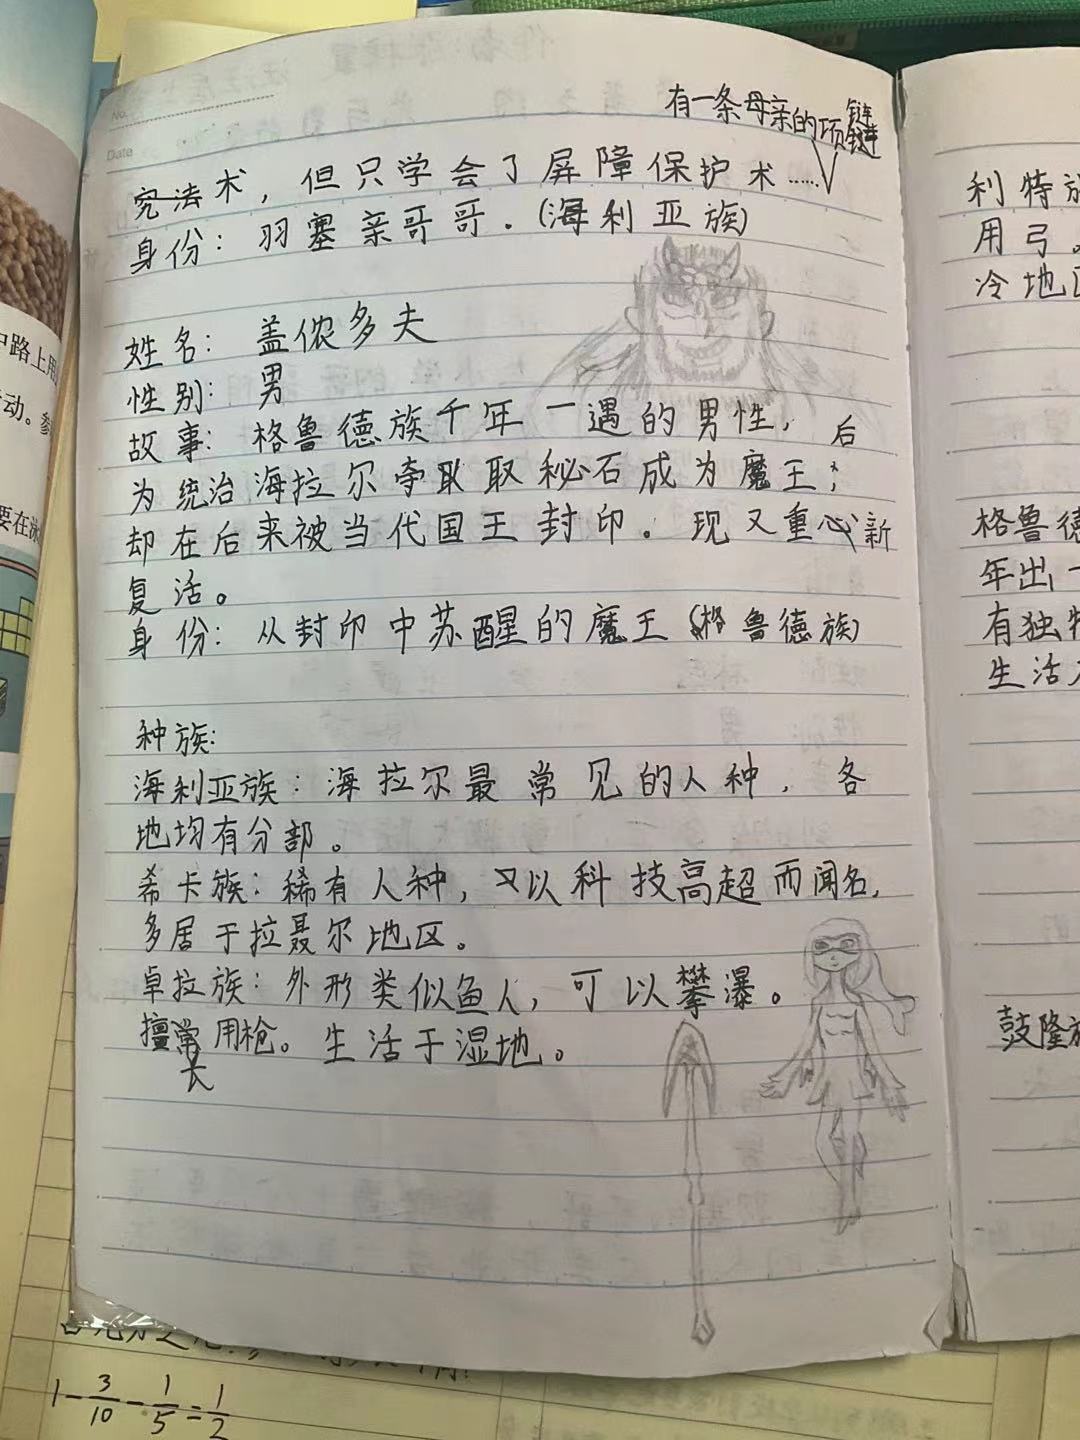 No.
Date
有一条母亲的项链
究法术，但只学会了屏障保护术……
身份：羽塞亲哥哥.(海利亚族)
姓名：盖侬多夫
性别：男
故事：格鲁德族千年一遇的男性，后
为统治海拉尔夺取取秘石成为魔王；
却在后来被当代国王封印。现又重新
复活。
身份：从封印中苏醒的魔王(格鲁德族)
种族：
海利亚族：海拉尔最常见的人种，各
地均有分部。
希卡族：稀有人种，又以科技高超而闻名，
多居于拉聂尔地区。
卓拉族：外形类似鱼人，可以攀瀑。
擅长用枪。生活于湿地。
利特族
用弓。
冷地区
格鲁德
年出一
有独特
生活
鼓隆族
中路上用
动。参
要在泳
1-3/10-1/5=1/2